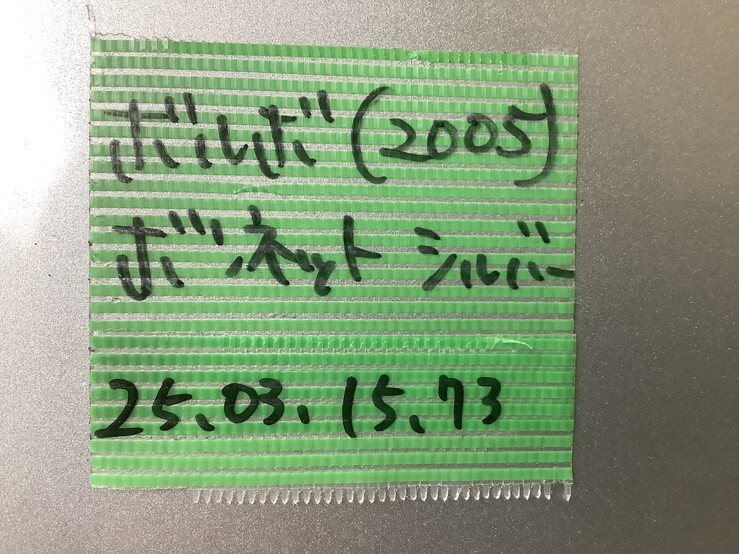 ボルボ(2005)
ボネット シルバー
25.03.15.73